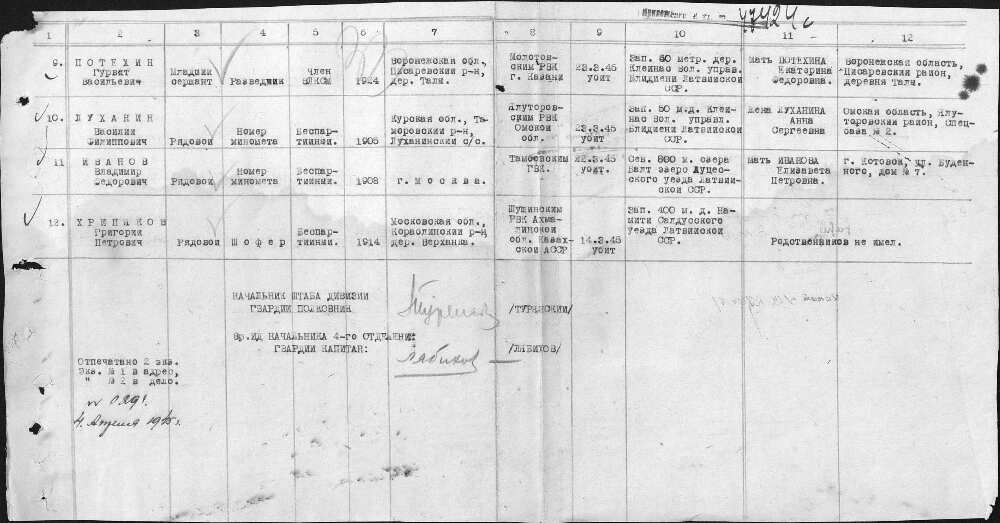 47424с
1 2 3 4 5 6 7 8 9 10 11 12
9. ПОТЕХИН Гурват Васильевич
Младший сержант
Разведчик
Член ВЛКСМ
1924
Воронежская обл., Писаревский р-н, дер. Тали.
Молотовским РВК г. Казани
23.3.45 убит
Зап. 50 метр. дер. Клейнас Вол. управ. Блидиени Латвийской ССР.
Мать ПОТЕХИНА Екатерина Федоровна.
Воронежская область, Писаревский район, деревня Тали.
10. ЛУХАНИН Василий Филиппович
Рядовой
Номер миномета
Беспартийный.
1905
Курская обл., Таморовский р-н, Луханинский с/с.
Ялуторовским РВК Омской обл.
23.3.45 убит.
Зап. 50 м.д. Клейнас Вол. управл. Блидиени Латвийской ССР.
Жена ЛУХАНИНА Анна Сергеевна
Омская область, Ялуторовский район, Спецбаза № 2.
11 ИВАНОВ Владимир Федорович
Рядовой
Номер миномета
Беспартийный.
1908
г. Москва.
Тамбовским ГВК.
22.3.45 убит.
Сев. 800 м. озера
ССР.
Мать ИВАНОВА Елизавета Петровна.
г. Котовск, ул. Буденного, дом № 7.
12. ХРЕНИКОВ Григорий Петрович
Рядовой
Шофер
Беспартийный.
1914
Московская обл., Кораблинский р-н, дер. Верханка.
Шушинским РВК Акмалинской обл. Казахской АССР
14.3.45 убит
Зап. 400 м. д. Намити Салдусского уезда Латвийской ССР.
Родственников не имел.
НАЧАЛЬНИК ШТАБА ДИВИЗИИ
ГВАРДИИ ПОЛКОВНИК
/ТУРЯНСКИЙ/
Вр.ИД НАЧАЛЬНИКА 4-го ОТДЕЛЕНИЯ
ГВАРДИИ КАПИТАН:
Лябихов
/ЛЯБИХОВ/
Отпечатано 2 экз.
Экз. № 1 в адрес,
" № 2 в дело.
№ 0291
4. Апреля 1945 г.